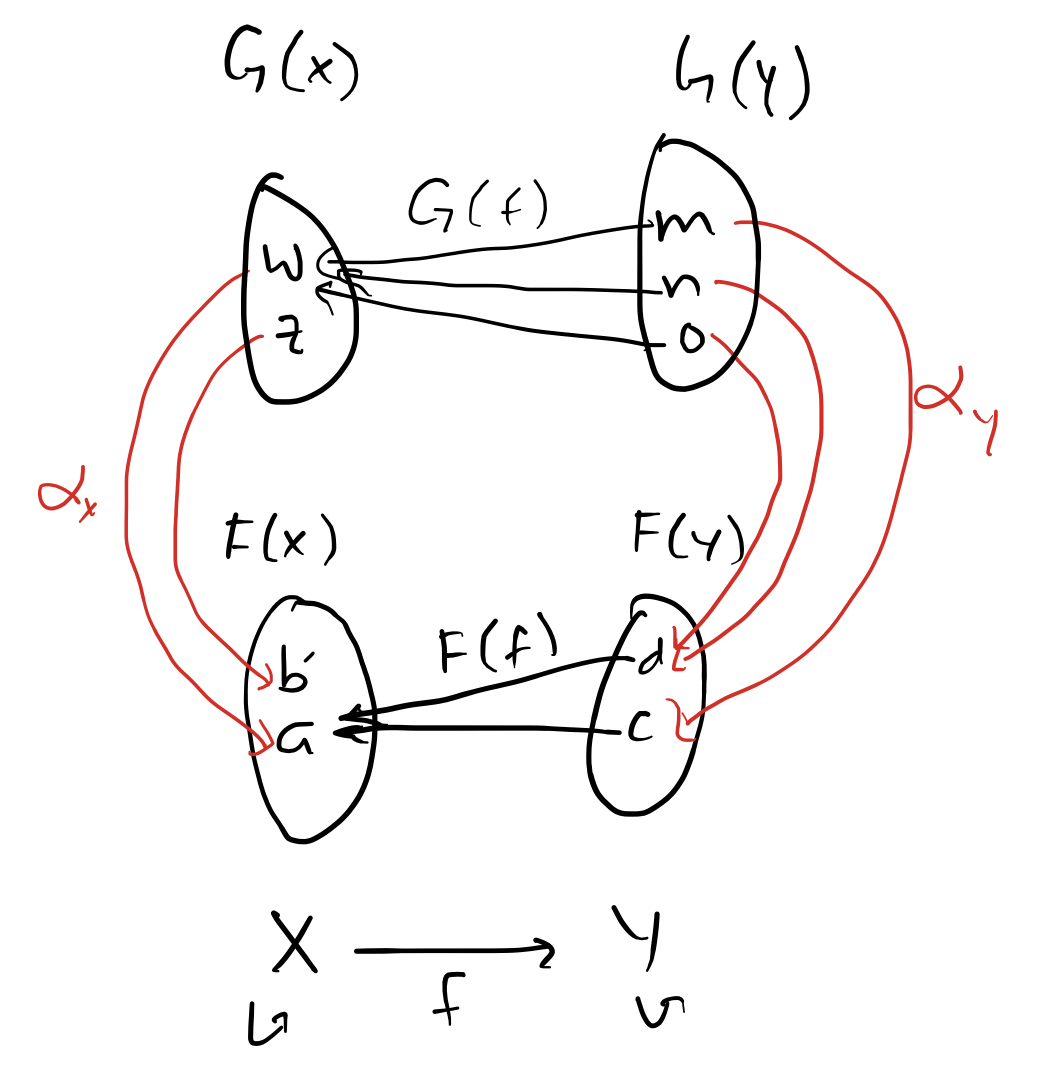 G(x) G(y)
G(f)
w m
z n
o
αx αy
F(x) F(y)
F(f)
b d
a c
X Y
f